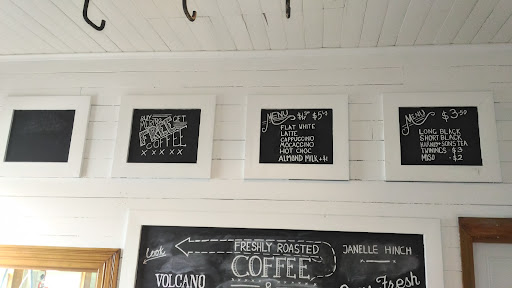 GET
FREE
COFFEE
XXXXX
MENU $5
FLAT WHITE
LATTE
CAPPUCCINO
MOCACCINO
HOT CHOC
ALMOND MILK +$1
MENU $3.50
LONG BLACK
SHORT BLACK
HARNEY & SONS TEA
TWININGS $3
MISO - $2
Look
FRESHLY ROASTED
COFFEE
&
VOLCANO
JANELLE HINCH
Fresh